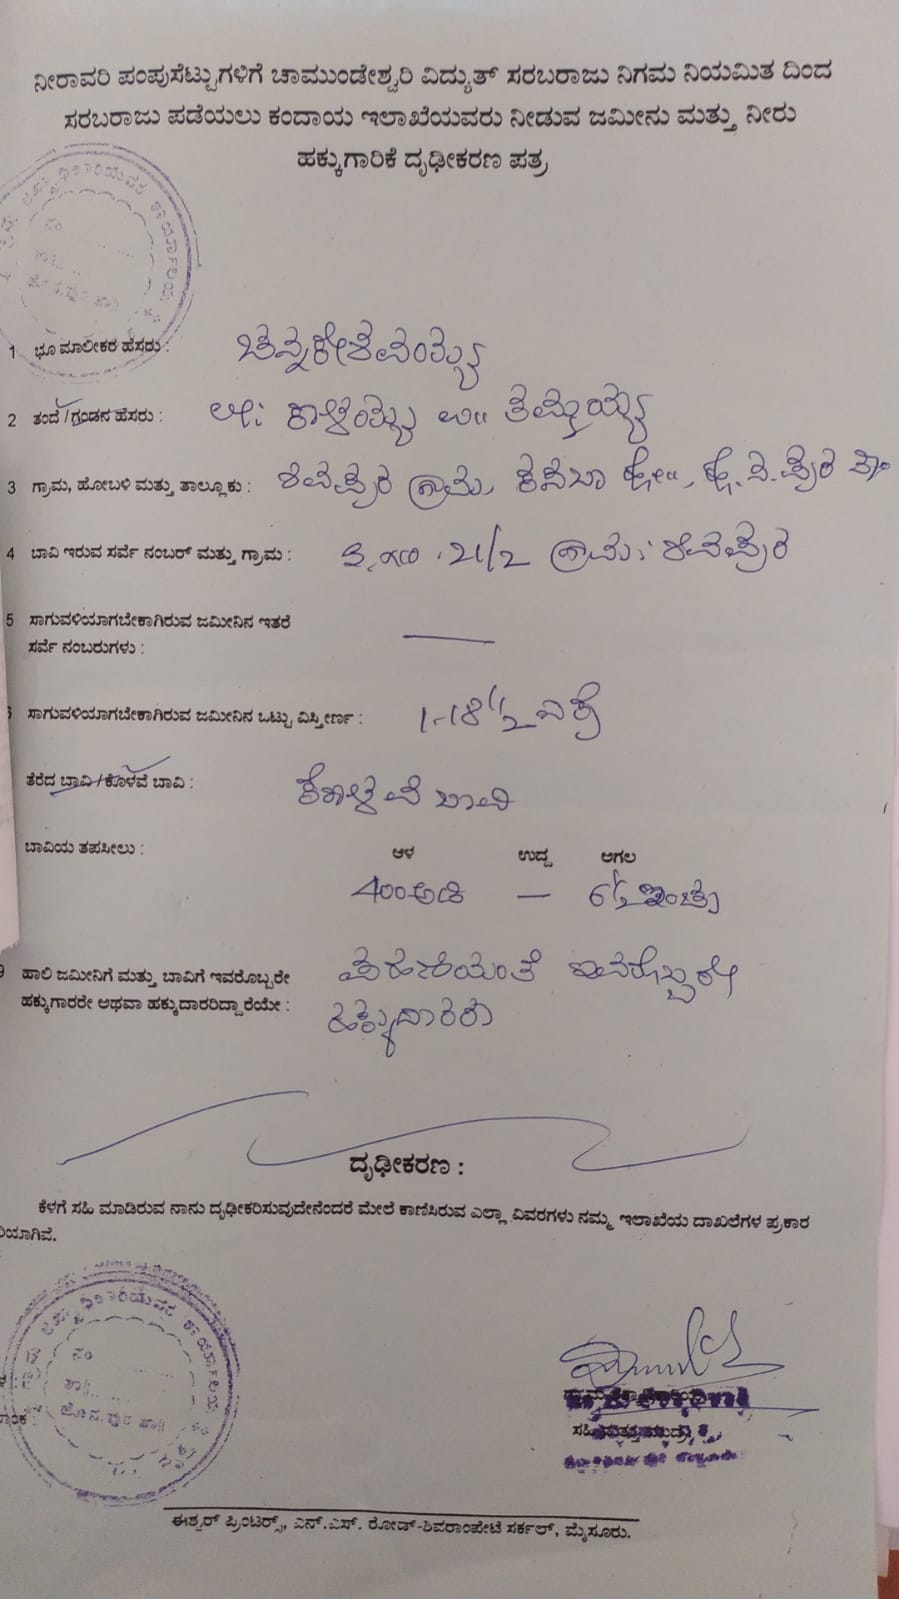 ನೀರಾವರಿ ಪಂಪುಸೆಟ್ಟುಗಳಿಗೆ ಚಾಮುಂಡೇಶ್ವರಿ ವಿದ್ಯುತ್ ಸರಬರಾಜು ನಿಗಮ ನಿಯಮಿತ ದಿಂದ
ಸರಬರಾಜು ಪಡೆಯಲು ಕಂದಾಯ ಇಲಾಖೆಯವರು ನೀಡುವ ಜಮೀನು ಮತ್ತು ನೀರು
ಹಕ್ಕುಗಾರಿಕೆ ದೃಢೀಕರಣ ಪತ್ರ
1 ಭೂ ಮಾಲೀಕರ ಹೆಸರು : ಚನ್ನಕೇಶವಯ್ಯ
2 ತಂದೆ / ಗಂಡನ ಹೆಸರು : ಲೇ: ಕಾಳಯ್ಯ ಉ॥ ತಿಮ್ಮಯ್ಯ
3 ಗ್ರಾಮ, ಹೋಬಳಿ ಮತ್ತು ತಾಲ್ಲೂಕು : ಗ್ರಾಮ, ಕಸಬಾ ಹೋ॥,
4 ಬಾವಿ ಇರುವ ಸರ್ವೆ ನಂಬರ್ ಮತ್ತು ಗ್ರಾಮ : ಸ.ನಂ. 21/2 ಗ್ರಾಮ:
5 ಸಾಗುವಳಿಯಾಗಬೇಕಾಗಿರುವ ಜಮೀನಿನ ಇತರೆ
ಸರ್ವೆ ನಂಬರುಗಳು : —
ಸಾಗುವಳಿಯಾಗಬೇಕಾಗಿರುವ ಜಮೀನಿನ ಒಟ್ಟು ವಿಸ್ತೀರ್ಣ : 1-18 1/2 ಎಕ್ರೆ
ತೆರೆದ ಬಾವಿ / ಕೊಳವೆ ಬಾವಿ : ಕೊಳವೆ ಬಾವಿ
ಬಾವಿಯ ತಪಸೀಲು : ಆಳ ಉದ್ದ ಅಗಲ
400 ಅಡಿ — 6 1/2 ಇಂಚು
9 ಹಾಲಿ ಜಮೀನಿಗೆ ಮತ್ತು ಬಾವಿಗೆ ಇವರೊಬ್ಬರೇ ಪಹಣಿಯಂತೆ ಇವರೊಬ್ಬರೇ
ಹಕ್ಕುಗಾರರೇ ಅಥವಾ ಹಕ್ಕುದಾರರಿದ್ದಾರೆಯೇ : ಹಕ್ಕುದಾರರು
ದೃಢೀಕರಣ :
ಕೆಳಗೆ ಸಹಿ ಮಾಡಿರುವ ನಾನು ದೃಢೀಕರಿಸುವುದೇನೆಂದರೆ ಮೇಲೆ ಕಾಣಿಸಿರುವ ಎಲ್ಲಾ ವಿವರಗಳು ನಮ್ಮ ಇಲಾಖೆಯ ದಾಖಲೆಗಳ ಪ್ರಕಾರ
ರಿಯಾಗಿವೆ.
ಸಹಿ ಮತ್ತು ಮುದ್ರೆ
ಈಶ್ವರ್ ಪ್ರಿಂಟರ್ಸ್, ಎನ್.ಎಸ್. ರೋಡ್-ಶಿವರಾಂಪೇಟೆ ಸರ್ಕಲ್, ಮೈಸೂರು.